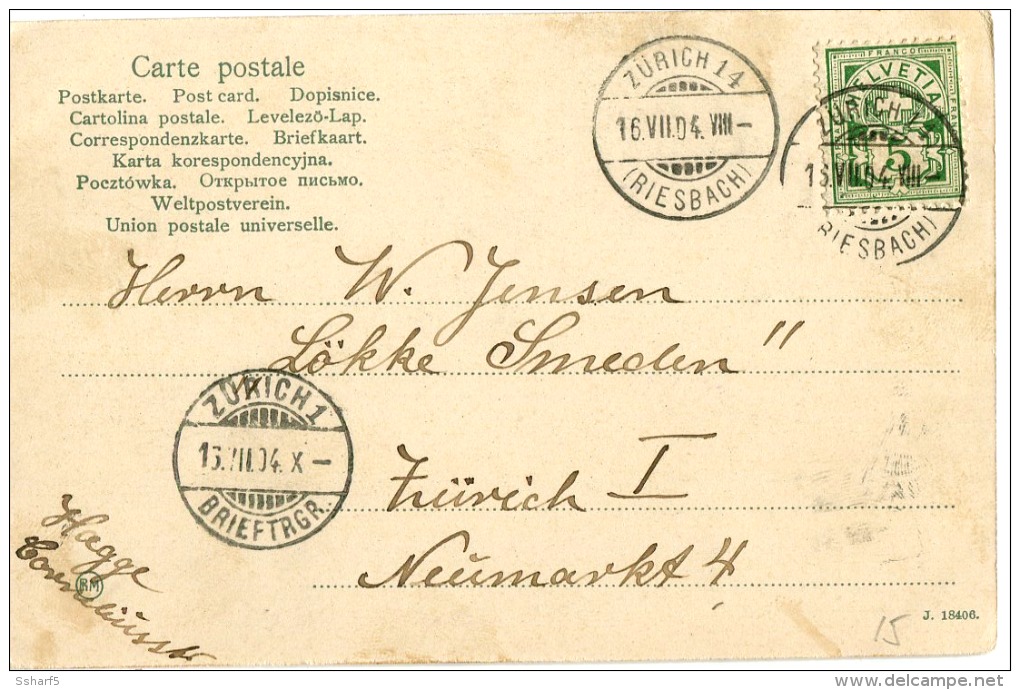 Carte postale
Postkarte. Post card. Dopisnice.
Cartolina postale. Levelező-Lap.
Correspondenzkarte. Briefkaart.
Karta korespondencyjna.
Pocztówka. Открытое письмо.
Weltpostverein.
Union postale universelle.
ZÜRICH 14
16.VII.04. VIII–
(RIESBACH)
FRANCO
HELVETIA
5
ZÜRICH 14
VII.04. XII–
(RIESBACH)
Herrn W. Jensen
Lökke Smeden"
ZÜRICH 1
VII.04. X –
BRIEFTRGR.
Zürich I
Neumarkt 4
Hagge
Corneliusstr
RM
J. 18406.
15
Ssharf5
www.delcampe.net